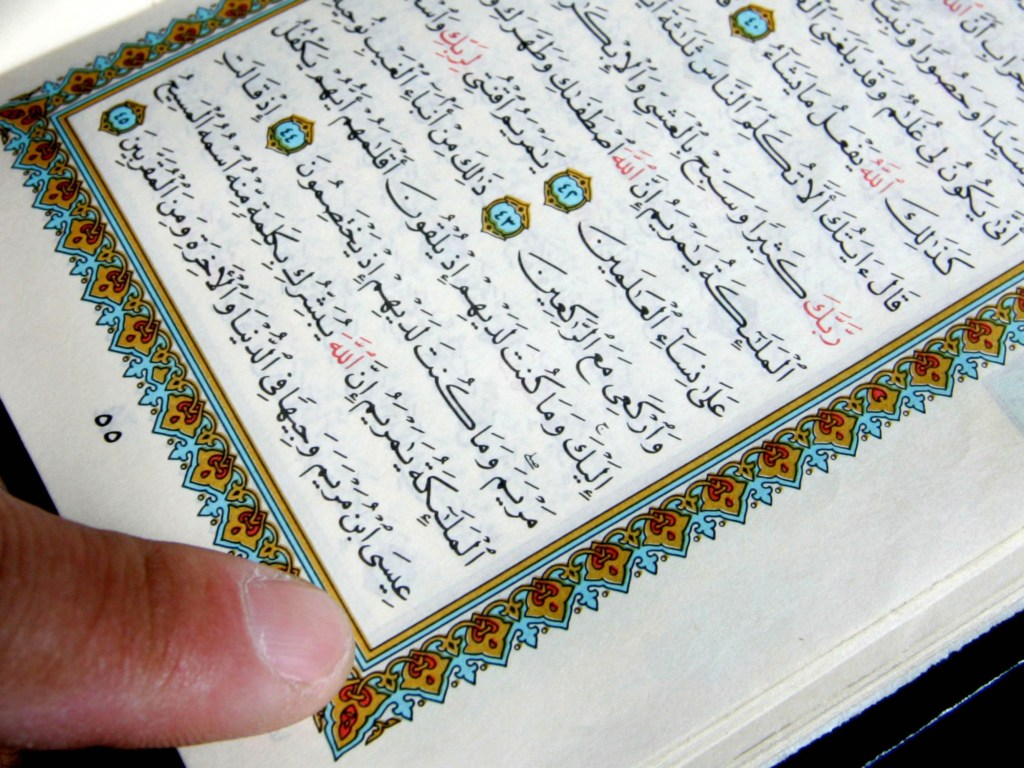 أَنَّ ٱللَّهَ
وَحَصُورًا وَنَبِيًّا
أَنَّىٰ يَكُونُ لِي غُلَـٰمٌ وَقَدْ بَلَغَنِيَ
كَذَٰلِكَ ٱللَّهُ يَفْعَلُ مَا يَشَآءُ ٤٠
قَالَ ءَايَتُكَ أَلَّا تُكَلِّمَ ٱلنَّاسَ ثَلَـٰثَةَ
رَّبَّكَ كَثِيرًا وَسَبِّحْ بِٱلْعَشِيِّ وَٱلْإِبْكَـٰرِ
ٱلْمَلَـٰٓئِكَةُ يَـٰمَرْيَمُ إِنَّ ٱللَّهَ ٱصْطَفَىٰكِ وَطَهَّرَكِ
عَلَىٰ نِسَآءِ ٱلْعَـٰلَمِينَ ٤٢ يَـٰمَرْيَمُ ٱقْنُتِي لِرَبِّكِ
وَٱرْكَعِي مَعَ ٱلرَّٰكِعِينَ ٤٣ ذَٰلِكَ مِنْ أَنۢبَآءِ ٱلْغَيْبِ نُوحِيهِ
إِلَيْكَ وَمَا كُنتَ لَدَيْهِمْ إِذْ يُلْقُونَ أَقْلَـٰمَهُمْ أَيُّهُمْ يَكْفُلُ
مَرْيَمَ وَمَا كُنتَ لَدَيْهِمْ إِذْ يَخْتَصِمُونَ ٤٤ إِذْ قَالَتِ
ٱلْمَلَـٰٓئِكَةُ يَـٰمَرْيَمُ إِنَّ ٱللَّهَ يُبَشِّرُكِ بِكَلِمَةٍ مِّنْهُ ٱسْمُهُ ٱلْمَسِيحُ
عِيسَى ٱبْنُ مَرْيَمَ وَجِيهًا فِي ٱلدُّنْيَا وَٱلْـَٔاخِرَةِ وَمِنَ ٱلْمُقَرَّبِينَ ٤٥
٥٥